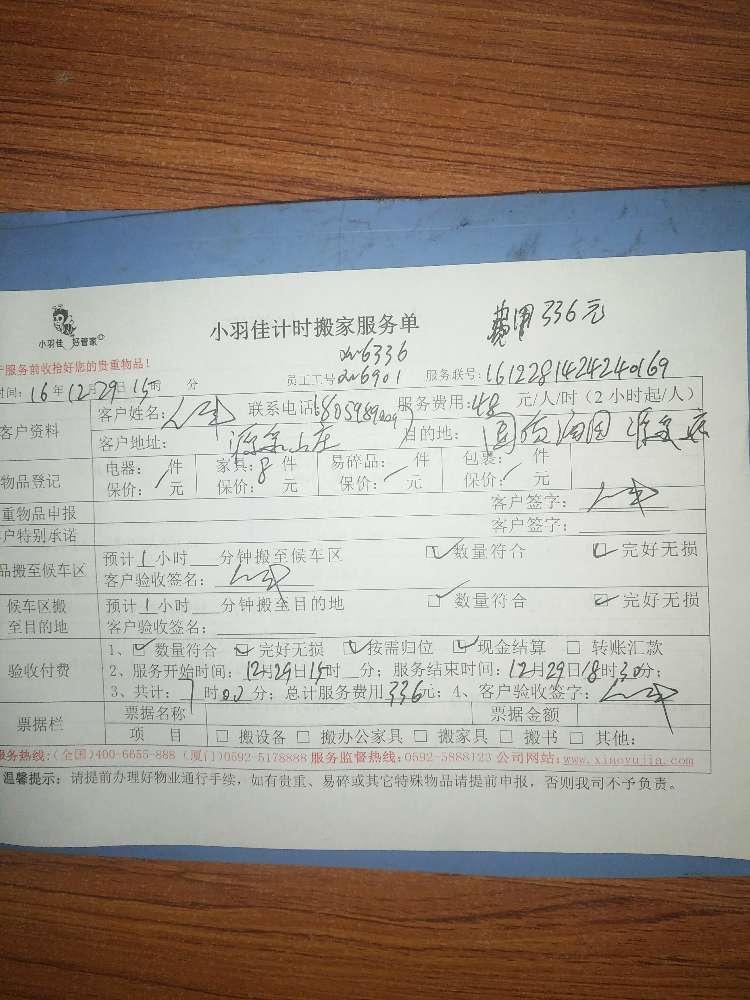 小羽佳 好管家
小羽佳计时搬家服务单 费用336元
服务前收拾好您的贵重物品！
xm6336
时间：16年12月29日15时 分 员工工号xm6901 服务联号：161228142424240169
客户资料
客户姓名： 联系电话： 服务费用：48 元/人/时（2小时起/人）
客户地址： 目的地：
物品登记
电器： 件 家具：8件 易碎品： 件 包裹： 件
保价： 元 保价： 元 保价： 元 保价： 元
重物品申报 客户签字：
户特别承诺 客户签字：
品搬至候车区
预计1小时 分钟搬至候车区 ☑数量符合 ☑完好无损
客户验收签名：
候车区搬至目的地
预计1小时 分钟搬至目的地 ☑数量符合 ☑完好无损
客户验收签名：
验收付费
1、☑数量符合 ☑完好无损 ☑按需归位 ☑现金结算 □转账汇款
2、服务开始时间：12月29日15时 分；服务结束时间：12月29日18时30分；
3、共计：7时00分；总计服务费用336元；4、客户验收签字：
票据栏
票据名称 票据金额
项 目 □搬设备 □搬办公家具 □搬家具 □搬书 □其他：
服务热线：(全国)400-6655-888 (厦门)0592-5178888 服务监督热线：0592-5888123 公司网站：www.xiaoyujia.com
温馨提示：请提前办理好物业通行手续，如有贵重、易碎或其它特殊物品请提前申报，否则我司不予负责。